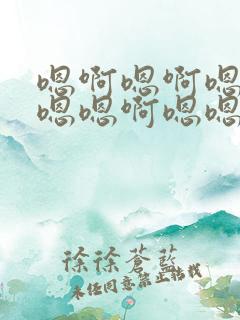 嗯啊嗯啊嗯
嗯嗯啊嗯嗯
徐徐苍蓝
未经同意禁止转载